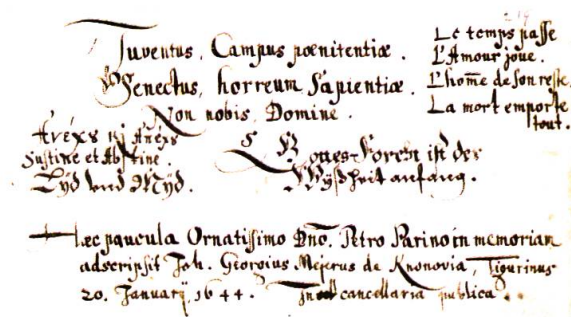 Juventus, Campus pœnitentiæ.
Senectus, horreum Sapientiæ.
Non nobis, Domine.
Le temps passe
L'Amour joue.
L'hom̃e de son reste.
La mort emporte
tout.
Ἀνέχȣ κ Ἀπέχȣ
Sustine et Abstine.
Lÿd und Mÿd.
Gottes-Forcht ist der
Wÿßheit anfang.
Hæc paucula Ornatissimo Dño. Petro Parino in memoriam
adscripsit Joh. Georgius Meserus de Knonovia, Tigurinus
20. Januarÿ, 1644. cancellaria publica.